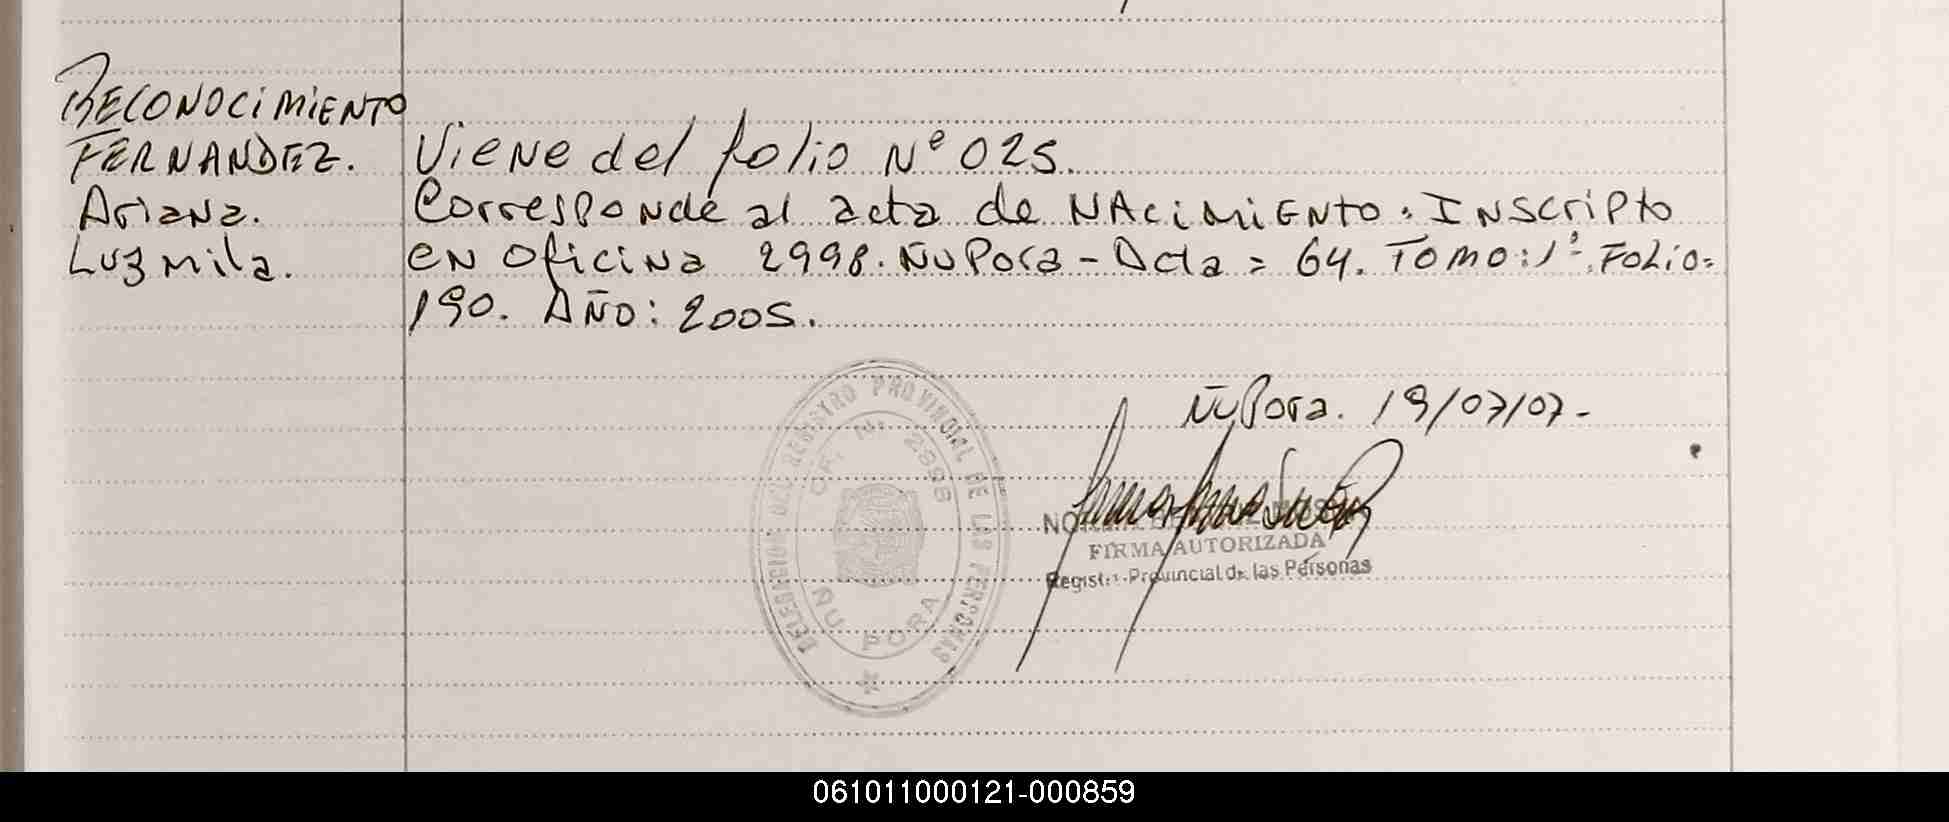 RECONOCIMIENTO
FERNANDEZ.
Ariana.
Luzmila.
Viene del folio Nº 025.
Corresponde al acta de NAcimiENto. INscripto
en oficina 2998. ÑuPora - Acta = 64. Tomo: 1º. Folio=
190. AÑO: 2005.
ÑuPora. 19/07/07-
FIRMA AUTORIZADA
Registro Provincial de las Personas
DELEGACION DEL REGISTRO PROVINCIAL DE LAS PERSONAS
OF. N: 2998
ÑU PORA
061011000121-000859